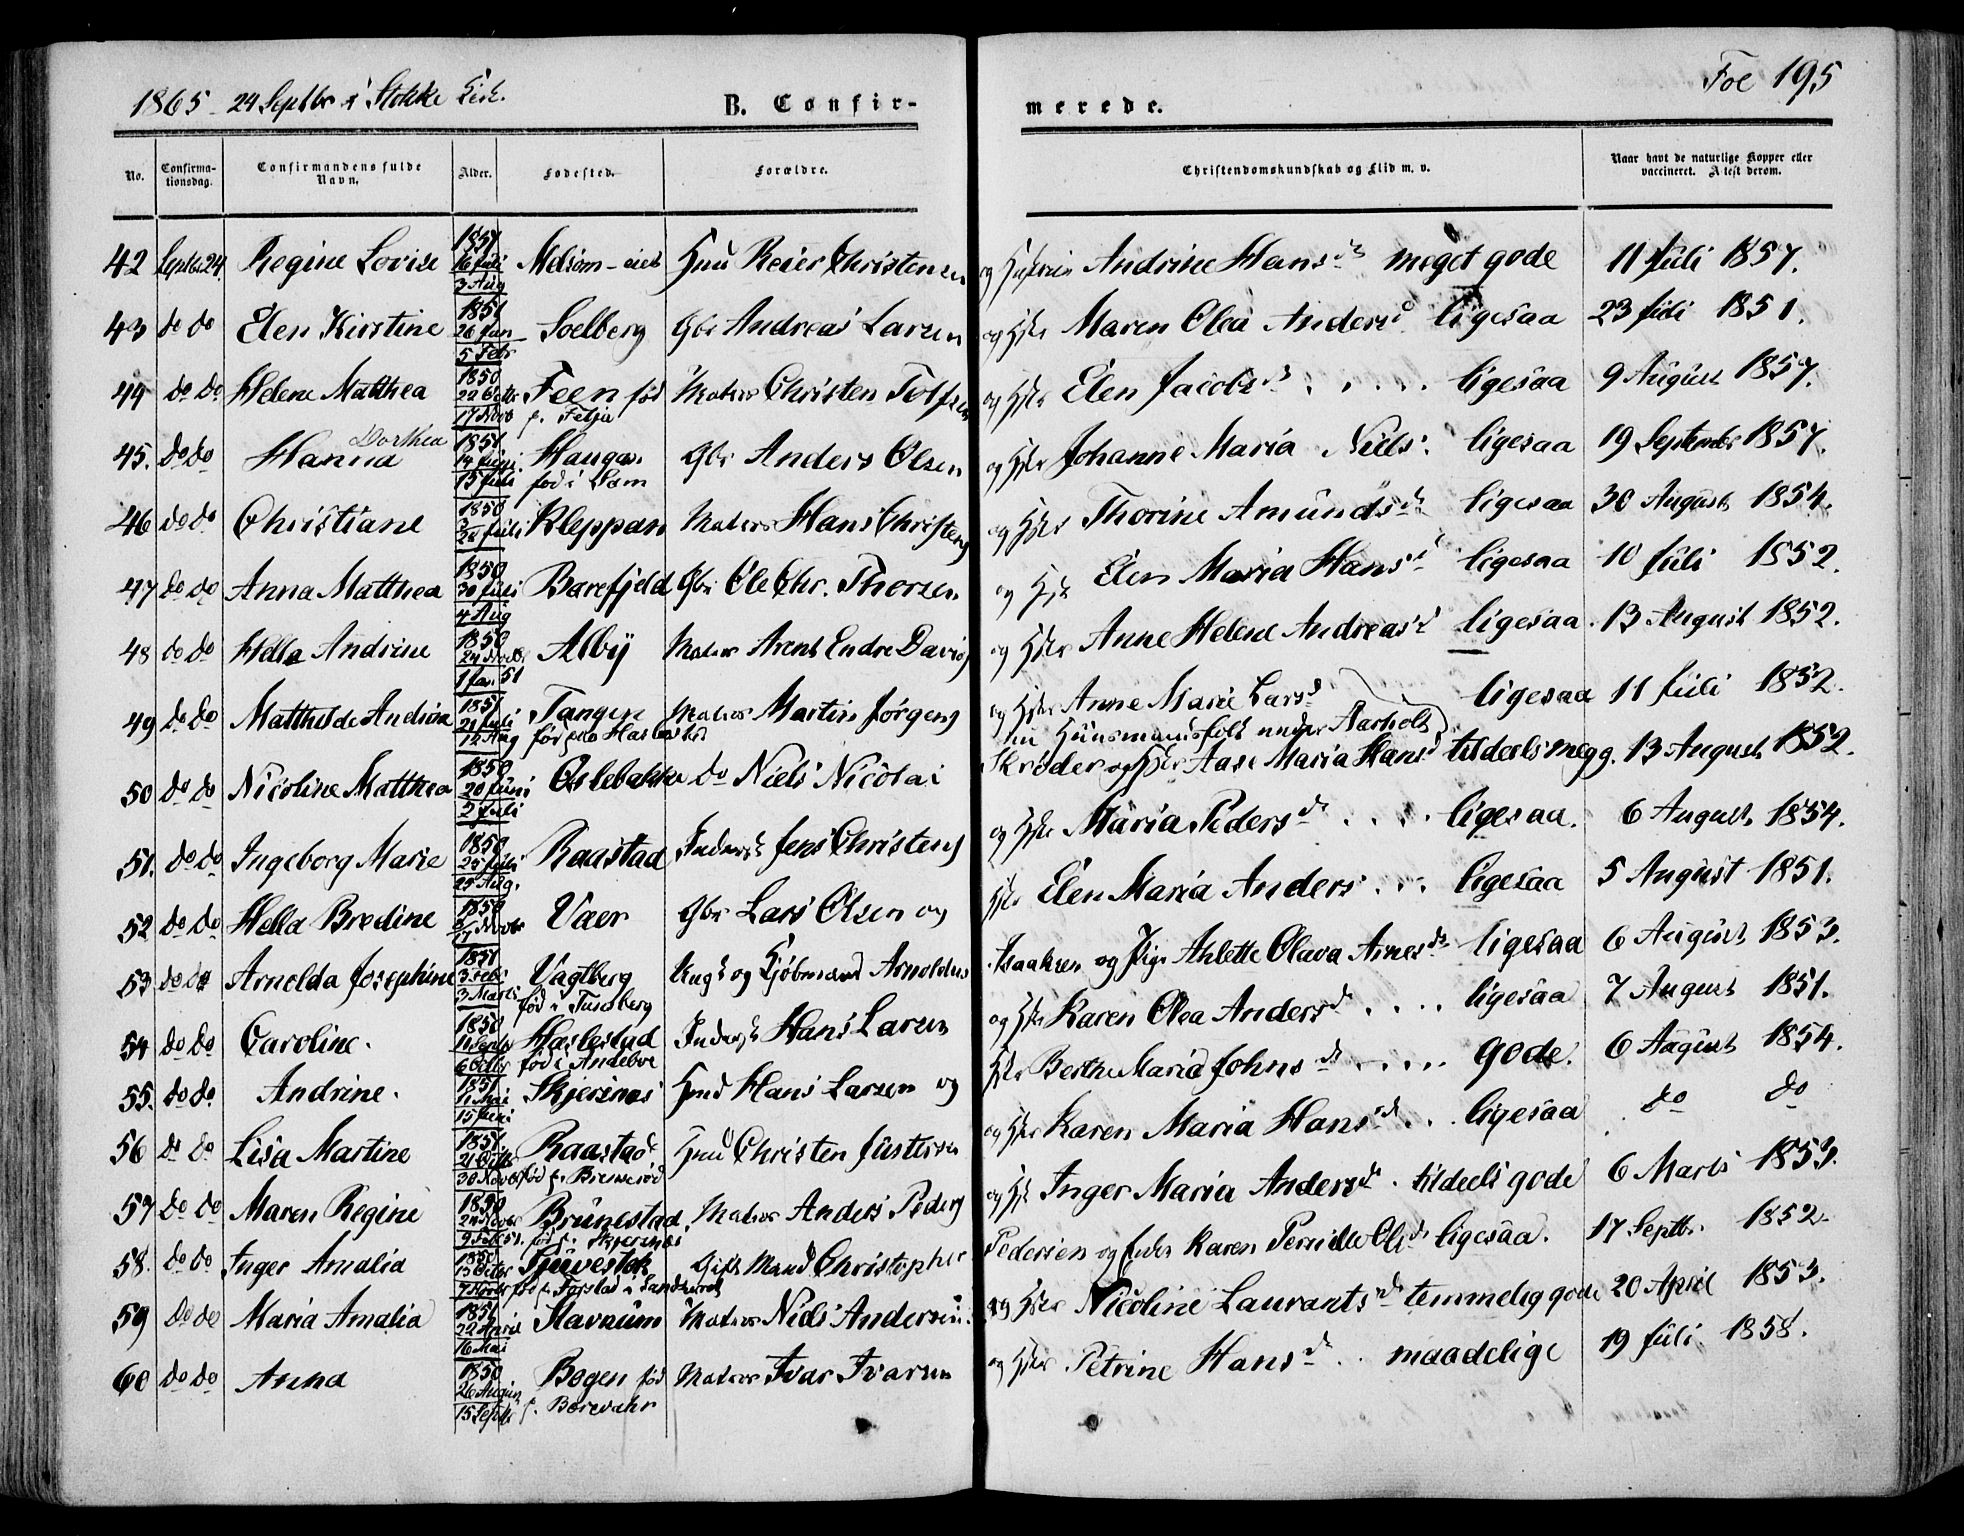 1865 - 24 Septbr i Stokke Kirk.
B. Confir-
merede.
Fol 195
No.
Confirma-
tionsdag.
Confirmandens fulde
Navn.
Alder.
Fødested.
Forældre.
Christendomskundskab og Flid m. v.
Naar havt de naturlige Kopper eller
vaccineret. Attest derom.
42 Septbr 24 Regine Lovise 1851 16 Juli 3 Aug Melsom-eiet Hmd Reier Christensen og Andrine Hansd. meget gode 11 Juli 1857.
43 do do Elen Kirstine 1851 26 Jan 5 Febr Soelberg Gbr Andreas Larsen og Hst. Maren Olea Andersd. ligesaa 23 Juli 1851.
44 do do Helene Matthea 1850 22 Octbr 17 Novb Feen fød p. Matros Christen Tolfsen og Hst. Elen Jacobsd. ligesaa 9 August 1857.
45. do do Hanna Dorthea 1851 14 Juni 13 Juli Haugan fød i Sem Gbr Anders Olsen og Hst. Johanne Maria Niels. ligesaa 19 Septembr 1857.
46 do do Christiane 1850 2 28 Juli Kleppan Matros Hans Christens og Hst. Thorine Amundsd. ligesaa 30 August 1854.
47 do do Anna Matthea 1850 30 Juli 4 Aug Barefjeld Gbr Ole Chr. Thorsen og Hst. Elen Maria Hansd. ligesaa 10 Juli 1852.
48 do do Hella Andrine 1850 24 Novbr 1 Jan. 51 Alby Matros Arent Endre Davids og Hst. Anne Helene Andreasd. ligesaa 13 August 1852.
49 do do Matthilde Andrine 1851 21 Juli 12 Aug Tangen fød paa Matros Martin Jørgens og Hst. Anne Marie Larsd. nu Huusmandsfolk under Aarholt ligesaa 11 Juli 1852.
50 do do Nicoline Matthea 1850 20 Juni 2 Juli Oslebakke do Niels Nicolai Skrøder og Hst. Aase Maria Hansd. tildeels meg g. 13 August 1852.
51. do do Ingeborg Marie 1850 25 Juli 25 Aug. Raastad Inderst Jens Christens og Hst. Maria Pedersd. ligesaa. 6 August 1854.
52 do do Hella Bredine 1850 Novbr Vaer Gbr Lars Olsen og Hst. Elen Maria Anders. ligesaa 5 August 1851.
53 do do Arnolda Josephine 1851 3 Febr 3 Marts Vagtberg fød i Tunsberg Ungk og Kjøbmand Arnoldus Isaaksen og Pige Ahlette Olava Arnesd. ligesaa 6 August 1853.
54 do do Caroline. 1850 11 Septb 6 Octbr Haslestad fød i Andeboe Inderst Hans Larsen og Hst. Karen Olea Andersd. ligesaa 7 August 1851.
55. do do Andrine. 1851 11 Mai 15 Juni Skjersnæs Hmd Hans Larsen og Hst. Berthe Maria Johnsd. gode. 6 August 1854.
56 do do Lisa Martine 1851 21 Octbr 30 Novb Raastad fød p. Hmd Christen Justesen og Hst. Karen Maria Hansd. ligesaa do do
57 do do Maren Regine 1850 24 Novbr 9 Febr 51. Brunestad fød p. Skjersnæs Matros Anders Peders og Hst. Inger Maria Andersd. tildeels gode 6 Marts 1853.
58. do do Inger Amalia 1850 13 Octbr 7 Novbr Tjuvestok fød p. Forstad i Sandherred Gift Mand Christopher Pedersen og Enke Karen Pernille Olsd. ligesaa. 17 Septb. 1852.
59 do do Maria Amalia 1851 22 April 16 Mai Stavnum Matros Niels Andersen og Hst. Nicoline Laurantsd. temmelig gode 20 April 1853.
60 do do Anna 1850 26 August 15 Septbr Bogen fød p. Borevahr Matros Ivar Ivarsen og Hst. Petrine Hansd. maadelige 19 Juli 1858.